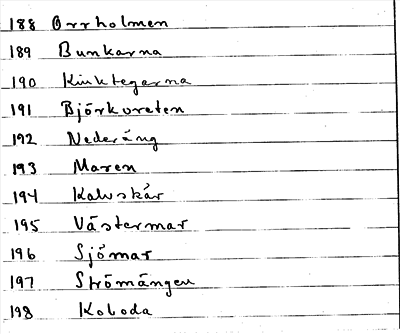 188 Orrholmen
189 Bunkarna
190 Kinktegarna
191 Björkvreten
192 Nederäng
193 Maren
194 Kalvskär
195 Västermar
196 Sjömar
197 Strömängen
198 Koloda